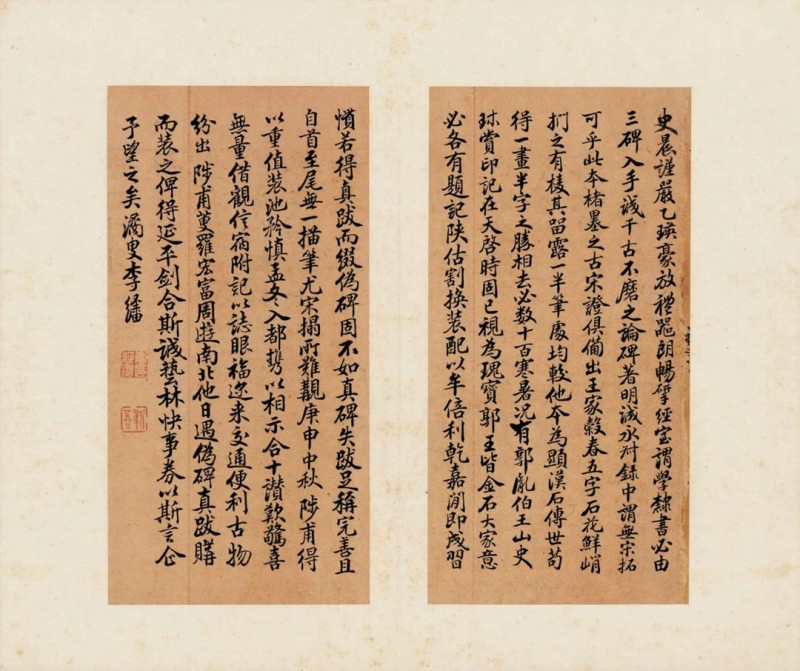 史晨謹嚴乙瑛豪放禮器朗暢擘經室謂學隸書必由
三碑入手誠千古不磨之論碑著明誠永叔錄中謂無宋拓
可乎此本楮墨之古宋證俱備出王家穀春五字石花鮮峭
捫之有棱其留露一半筆處均較他本為顯漢石傳世苟
得一畫半字之勝相去必數十百寒暑況有郭胤伯王山史
珎賞印記在天啓時固已視為瑰寶郭王皆金石大家意
必各有題記陝估割換裝配以牟倍利乾嘉間即成習
慣若得真跋而綴偽碑固不如真碑失跋足稱完善且
自首至尾無一描筆尤宋搨所難覯庚申中秋陟甫得
以重值裝池矜慎孟冬入都携以相示合十讚歎驚喜
無量借觀信宿附記以誌眼福邇來交通便利古物
紛出陟甫蒐羅宏富周遊南北他日遇偽碑真跋購
而裝之俾得延平劍合斯誠藝林快事券以斯言企
予望之矣潏叟李繙